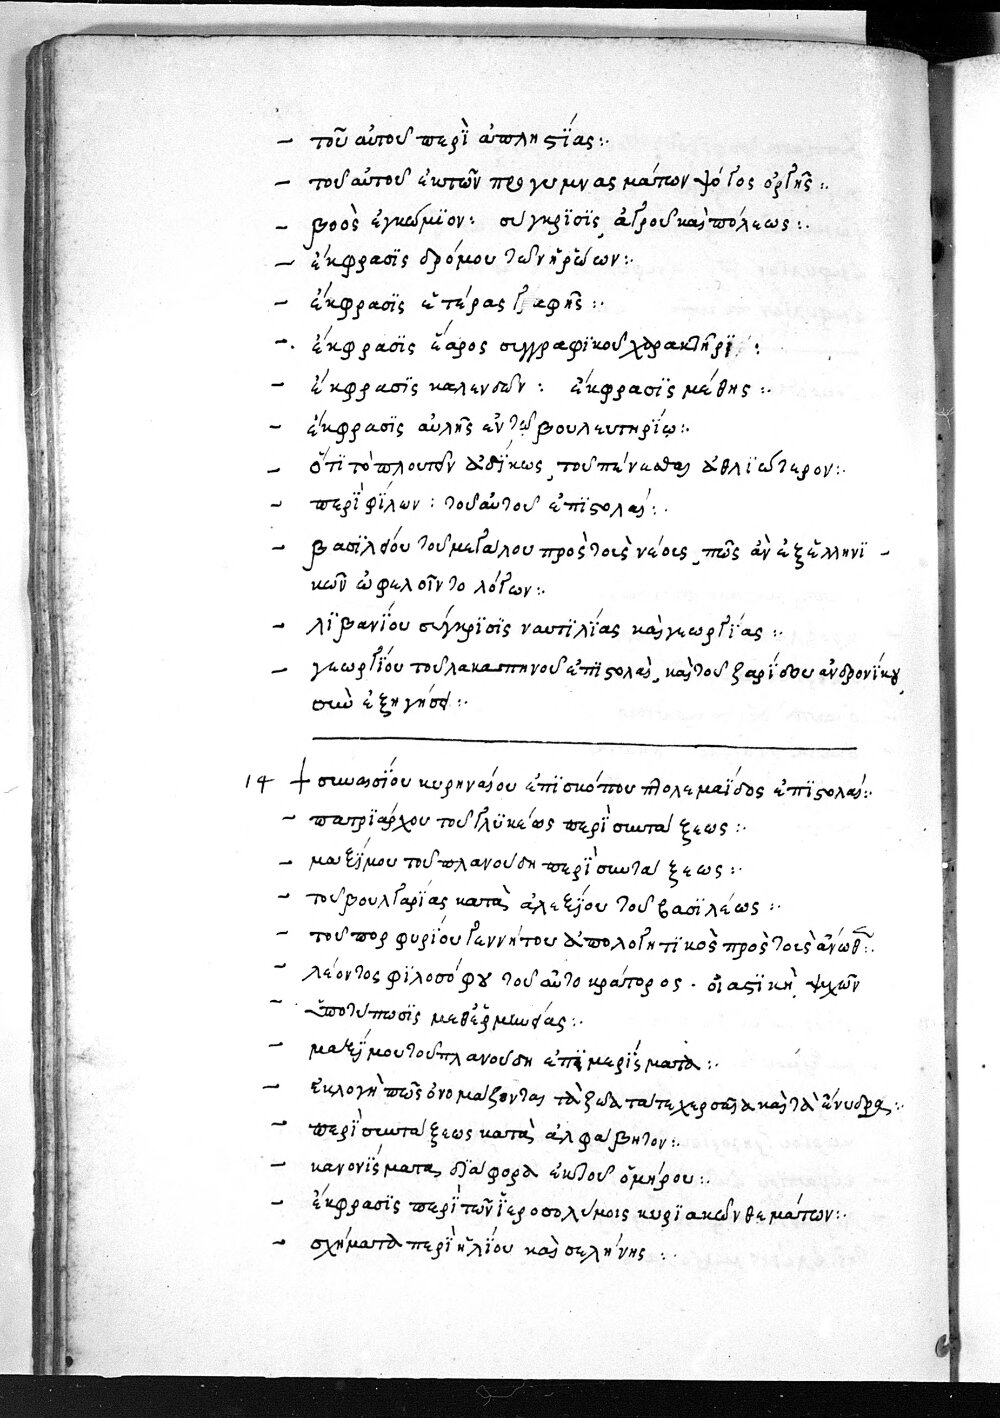 – τοῦ αὐτοῦ περὶ ἀπληστίας:·
– τοῦ αὐτοῦ ἐκ τῶν προγυμνασμάτων ψόγος ὀργῆς:·
– βοὸς ἐγκώμϊον: σύγκρϊσϊς ἀγροῦ καὶ πόλεως:·
– ἔκφρασϊς δρόμου τῶν ἡρώων:·
– ἔκφρασϊς ἑτέρας γραφῆς:·
– ἔκφρασϊς ἔαρος συγγραφϊκοῦ χαρακτῆρϊ:
– ἔκφρασϊς καλενδῶν: ἔκφρασϊς μέθης:·
– ἔκφρασϊς αὐλῆς ἐν τῷ βουλευτηρίῳ:·
– ὅτϊ τὸ πλουτεῖν ἀδίκως, τοῦ πένεσθαι ἀθλϊώτερον:·
– περὶ φίλων: τοῦ αὐτοῦ ἐπϊστολαί:·
– βασϊλείου τοῦ μεγάλου πρὸς τοὺς νέους, πῶς ἂν ἐξ ἑλληνϊ-
κῶν ὠφελοῖντο λόγων:·
– λϊβανίου σύγκρϊσϊς ναυτϊλίας καὶ γεωργίας:·
– γεωργίου τοῦ λακαπηνοῦ ἐπϊστολαὶ, καὶ τοῦ ζαρίδου ἀνδρονίκου,
σὺν ἐξηγήσει:·
14 + συνεσίου κυρηναίου ἐπϊσκόπου πτολεμαΐδος ἐπϊστολαί:·
– πατρϊάρχου τοῦ γλυκέως περὶ συντάξεως:·
– μαξίμου τοῦ πλανούδη περὶ συντάξεως:·
– τοῦ βουλγαρίας κατὰ ἀλεξίου τοῦ βασϊλέως:·
– τοῦ πορφυρίου γεννήτου ἀπολογητϊκὸς πρὸς τοὺς ἄνωθ:·
– λέοντος φϊλοσόφου τοῦ αὐτοκράτορος. οἰαστϊκὴ ψυχῶν
– ὑποτύπωσϊς μεθερμηνείας:·
– μαξίμου τοῦ πλανούδη ἐπϊμερίσματα:·
– ἐκλογὴ πῶς ὀνομάζονται τὰ ζῶα τά τε χερσαῖα καὶ τὰ ἔνυδρα:·
– περὶ συντάξεως κατὰ ἀλφάβητον:·
– κανονίσματα, δϊάφορα ἐκ τοῦ ὁμήρου:·
– ἔκφρασϊς περὶ τῶν ἱεροσολύμοις κυρϊακῶν θεμάτων:·
– σχήματα περὶ ἡλίου καὶ σελήνης:·